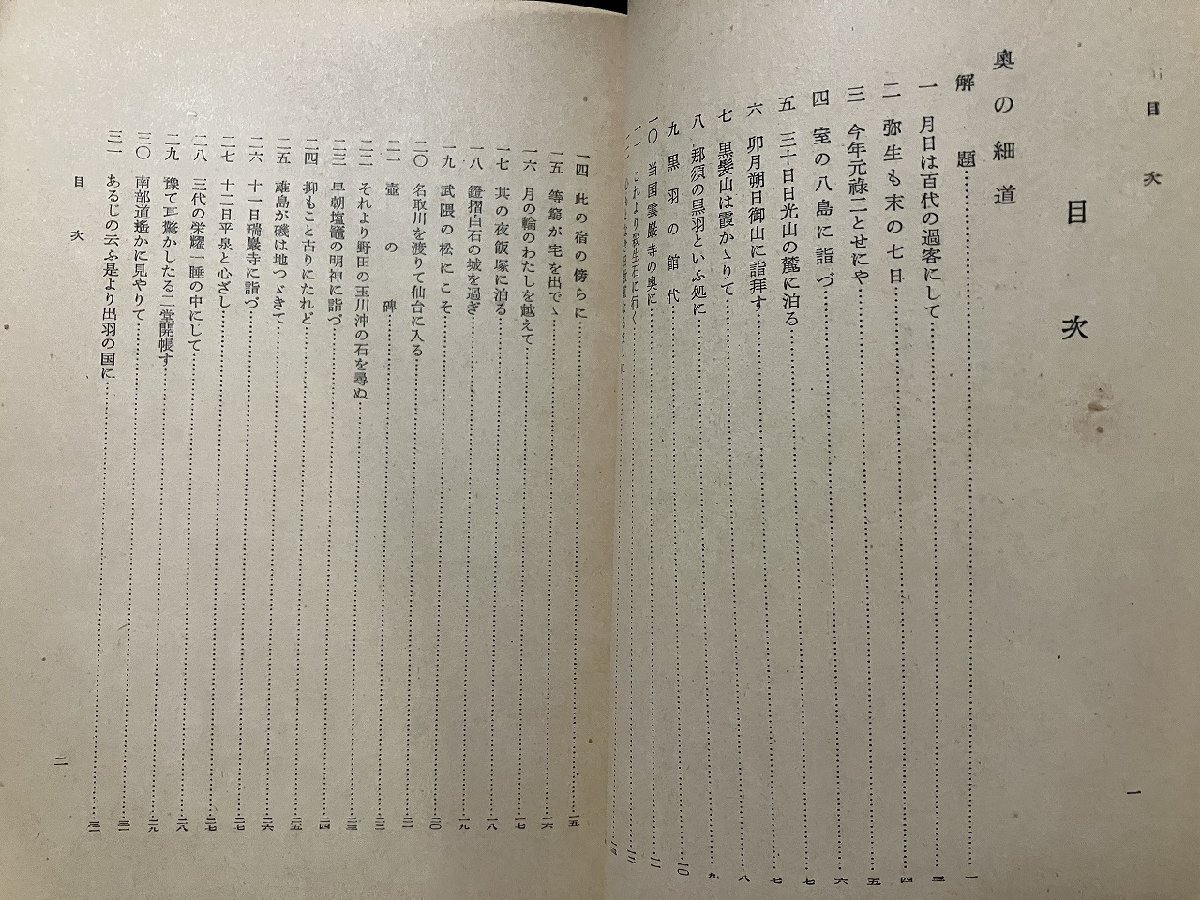 目次
目次
奥の細道
解題……一
一 月日は百代の過客にして……三
二 弥生も末の七日……四
三 今年元祿二とせにや……五
四 室の八島に詣づ……六
五 三十日日光山の麓に泊る……七
六 卯月朔日御山に詣拜す……七
七 黒髪山は霞かゝりて……八
八 那須の黒羽といふ処に……九
九 黒羽の館代……一〇
一〇 当国雲巌寺の奥に……一一
一一 これより殺生石に行く……一二
一
一四 此の宿の傍らに……一五
一五 等窮が宅を出でゝ……一六
一六 月の輪のわたしを越えて……一七
一七 其の夜飯塚に泊る……一八
一八 鐙摺白石の城を過ぎ……一九
一九 武隈の松にこそ……二〇
二〇 名取川を渡りて仙台に入る……二一
二一 壺の碑……二二
二二 それより野田の玉川沖の石を尋ぬ……二三
二三 早朝塩竈の明神に詣づ……二四
二四 抑もこと古りにたれど……二五
二五 雄島が磯は地つゞきて……二六
二六 十一日瑞巖寺に詣づ……二七
二七 十二日平泉と心ざし……二七
二八 三代の栄耀一睡の中にして……二八
二九 豫て耳驚かしたる二堂開帳す……二九
三〇 南部道遙かに見やりて……三一
三一 あるじの云ふ是より出羽の国に……三一
目次
二